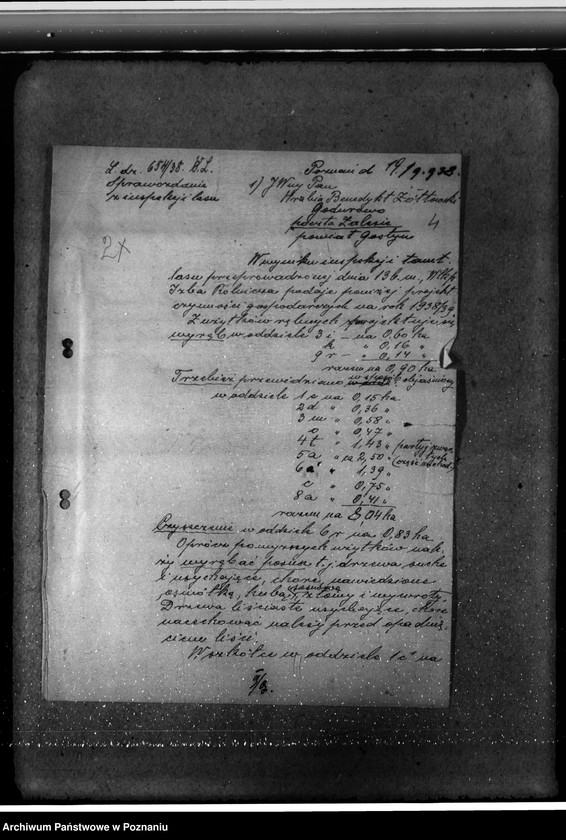 L. dz. 654/38. H.L.
Poznań d. 19/9. 938.
Sprawozdanie
z inspekcji lasu
1) JWny Pan
Hrabia Benedykt Żółtowski
Godurowo
poczta Zalesie
4
powiat Gostyń
2x
W wyniku inspekcji tamt.
lasu przeprowadzonej dnia 13 b.m., Wlkp.
Izba Rolnicza podaje poniżej projekt
czynności gospodarczych na rok 1938/39.
Z użytków rębnych projektuje się
wyrąb w oddziele 3 i – na 0,60 ha
k " 0,16 "
9 r – " 0,14 "
razem na 0,90 ha
Trzebież przewidziano w sposób objaśniony
w oddziele 1 c na 0,15 ha
2 d " 0,36 "
3 m " 0,58 "
o " 0,47 "
4 t " 1,43 "
5 a " 2,50 "
6 a " 1,39 "
c " 0,75 "
8 a " 0,41 "
razem na 8,04 ha
Czyszczenie w oddziele 6 r na 0,83 ha.
Oprócz powyższych użytków nale
ży wyrąbać posusz t.j. drzewa suche
i usychające, chore, nawiedzione
osmółką, hubą, złomy i wywroty.
Drzewa liściaste usychające, chore
nacechować należy przed opadnię-
ciem liści.
W szkółce w oddziele 1 c na
Archiwum Państwowe w Poznaniu